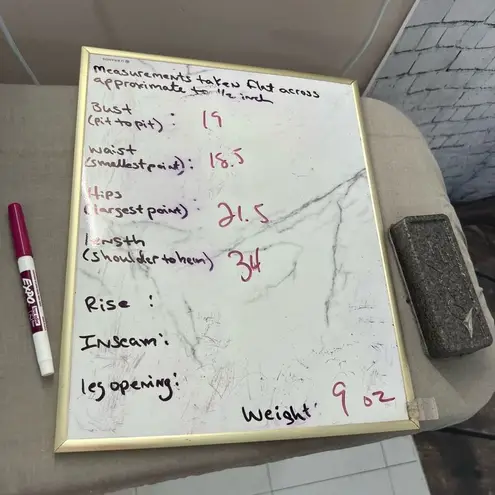 Measurements taken flat across
approximate to 1/2 inch
Bust
(pit to pit) : 19
waist
(smallest point) : 18.5
Hips
(largest point) : 21.5
length
(shoulder to hem) 34
Rise :
Inseam :
leg opening :
Weight : 9 oz
EXPO